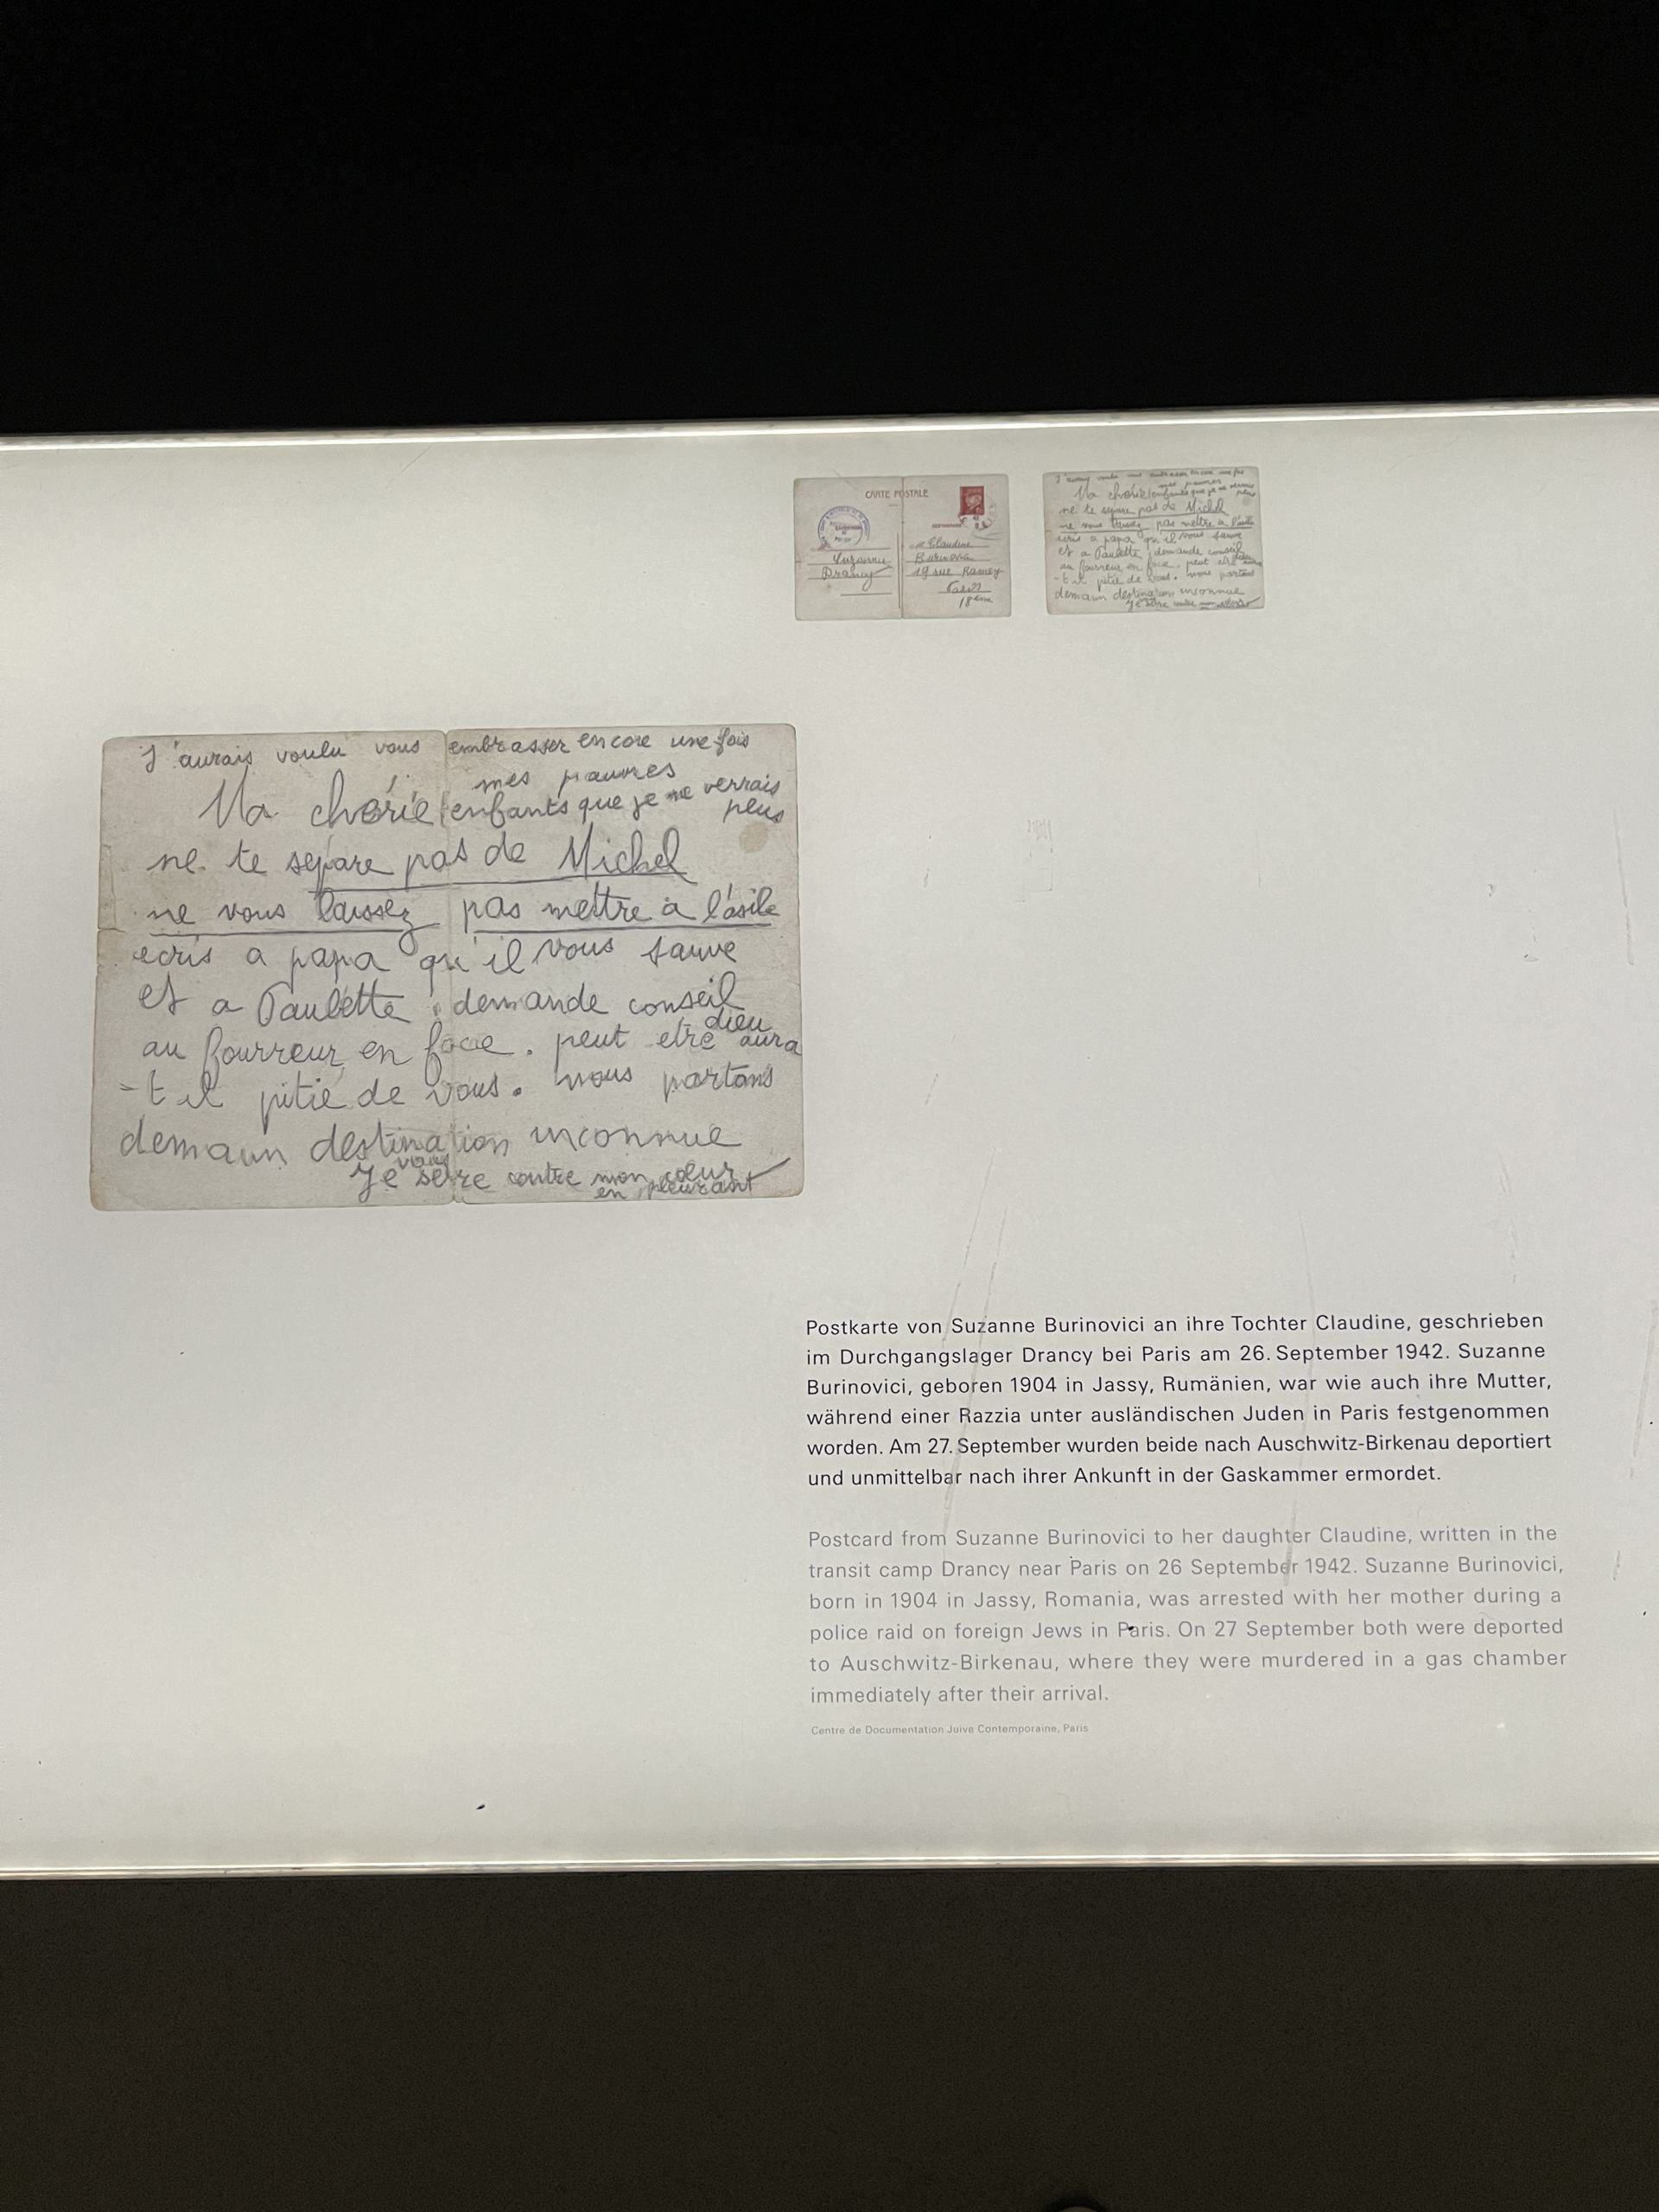 CARTE POSTALE
Suzanne
Drancy
Claudine
19 rue Ramey
18ème
J'aurais voulu vous embrasser encore une fois
mes pauvres
Ma chérie enfants que je ne verrais
plus
ne te sépare pas de Michel
ne vous laissez pas mettre à l'asile
ecris a papa qu'il vous sauve
et a Paulette. demande conseil
au fourreur en face. peut etre dieu aura
-t il pitié de vous. nous partons
demain destination inconnue
Je vous serre contre mon cœur
en pleurant
Postkarte von Suzanne Burinovici an ihre Tochter Claudine, geschrieben
im Durchgangslager Drancy bei Paris am 26. September 1942. Suzanne
Burinovici, geboren 1904 in Jassy, Rumänien, war wie auch ihre Mutter,
während einer Razzia unter ausländischen Juden in Paris festgenommen
worden. Am 27. September wurden beide nach Auschwitz-Birkenau deportiert
und unmittelbar nach ihrer Ankunft in der Gaskammer ermordet.
Postcard from Suzanne Burinovici to her daughter Claudine, written in the
transit camp Drancy near Paris on 26 September 1942. Suzanne Burinovici,
born in 1904 in Jassy, Romania, was arrested with her mother during a
police raid on foreign Jews in Paris. On 27 September both were deported
to Auschwitz-Birkenau, where they were murdered in a gas chamber
immediately after their arrival.
Centre de Documentation Juive Contemporaine, Paris